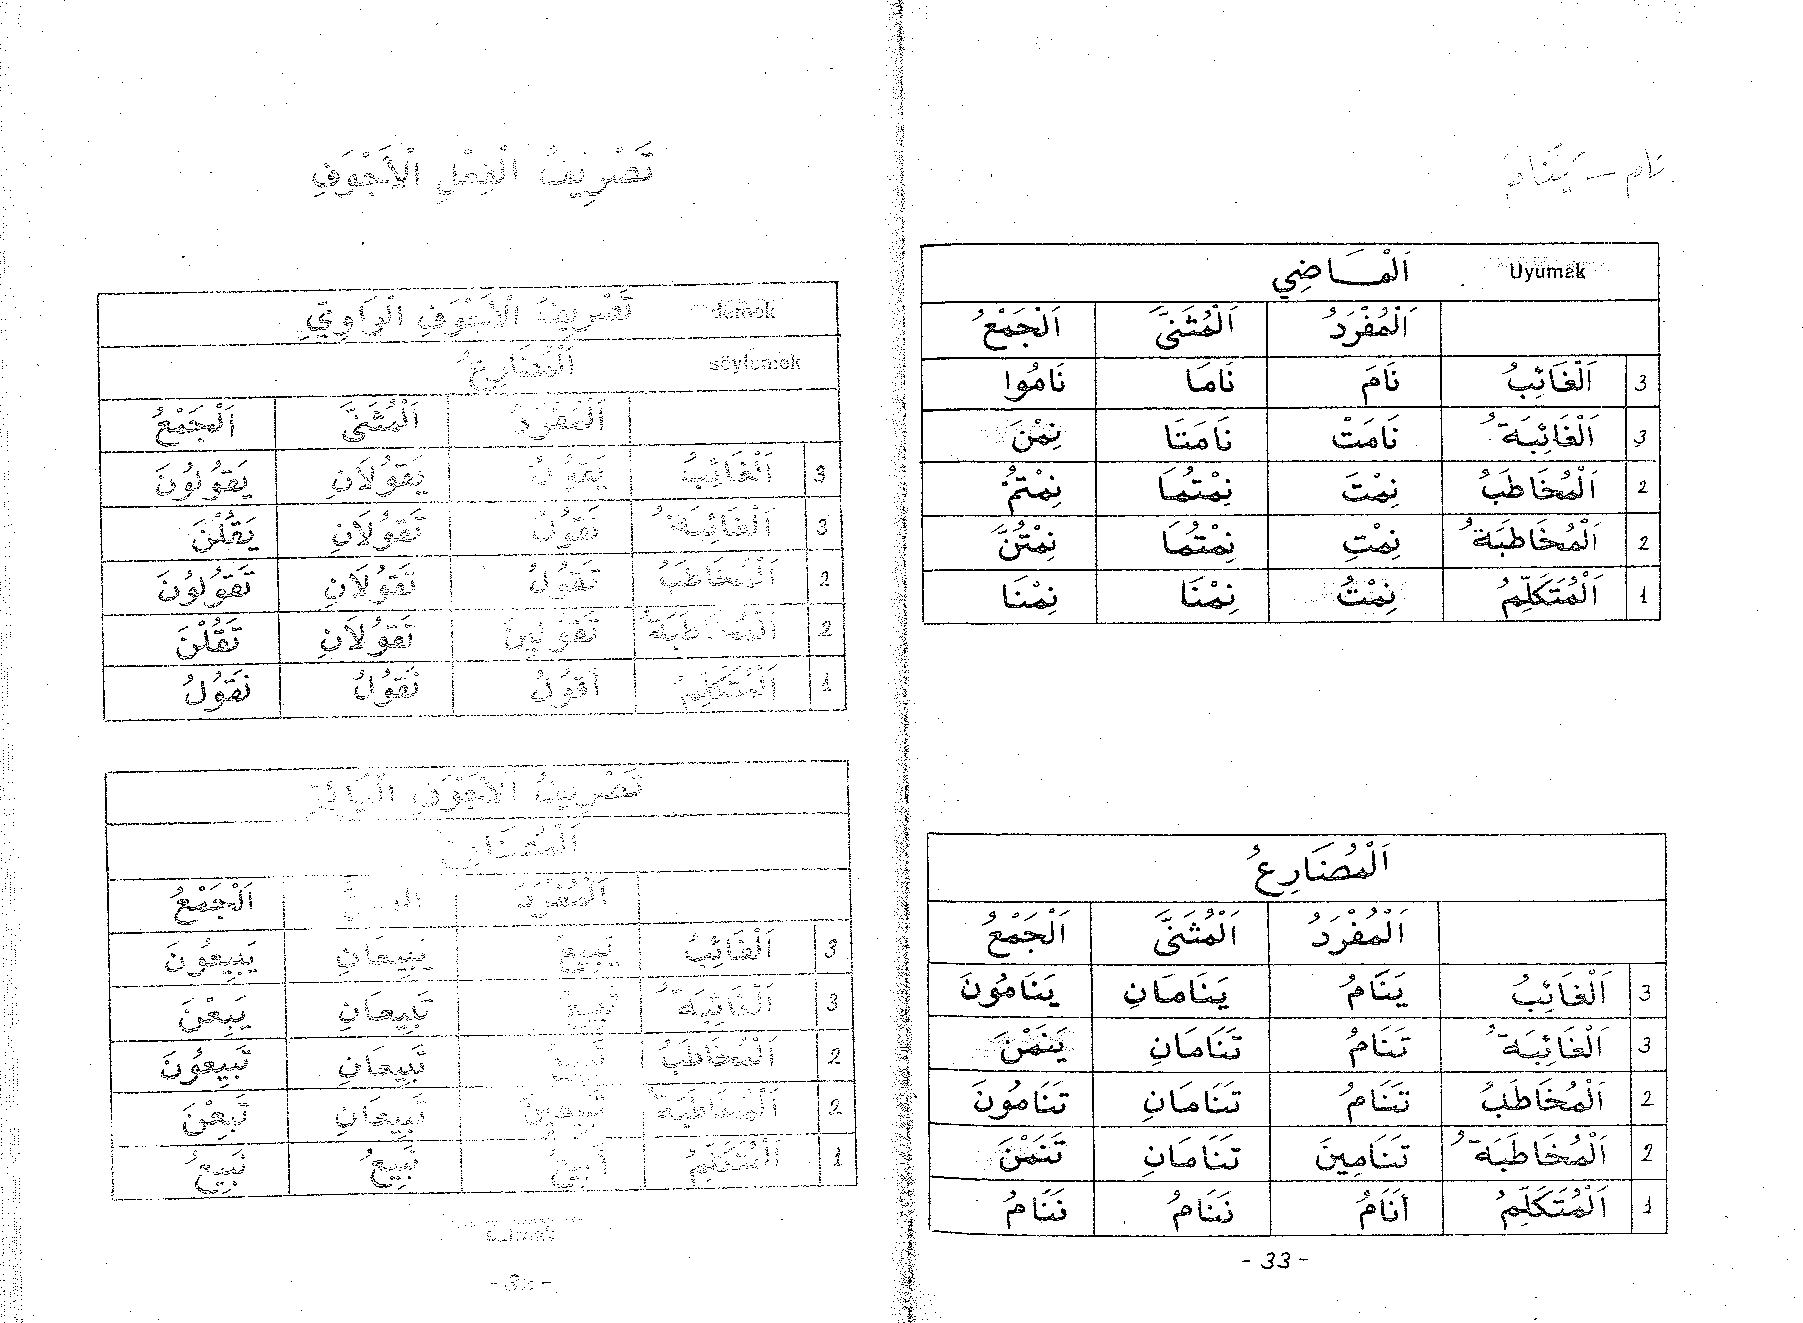 تَصْرِيفُ الْفِعْلِ الْأَجْوَفِ
تَصْرِيفُ الْأَجْوَفِ الْوَاوِيِّ demek
اَلْمُضَارِعُ söylemek
اَلْمُفْرَدُ اَلْمُثَنَّى اَلْجَمْعُ
3 اَلْغَائِبُ يَقُولُ يَقُولَانِ يَقُولُونَ
3 اَلْغَائِبَةُ تَقُولُ تَقُولَانِ يَقُلْنَ
2 اَلْمُخَاطَبُ تَقُولُ تَقُولَانِ تَقُولُونَ
2 اَلْمُخَاطَبَةُ تَقُولِينَ تَقُولَانِ تَقُلْنَ
1 اَلْمُتَكَلِّمُ اَقُولُ نَقُولُ نَقُولُ
تَصْرِيفُ الْأَجْوَفِ الْيَائِيِّ
اَلْمُضَارِعُ
اَلْمُفْرَدُ اَلْجَمْعُ
3 اَلْغَائِبُ يَبِيعُ يَبِيعَانِ يَبِيعُونَ
3 اَلْغَائِبَةُ تَبِيعُ تَبِيعَانِ يَبِعْنَ
2 اَلْمُخَاطَبُ تَبِيعُ تَبِيعَانِ تَبِيعُونَ
2 اَلْمُخَاطَبَةُ تَبِيعِينَ تَبِيعَانِ تَبِعْنَ
1 اَلْمُتَكَلِّمُ اَبِيعُ نَبِيعُ نَبِيعُ
نَام – يَنَامُ
اَلْمَاضِي Uyumak
اَلْمُفْرَدُ اَلْمُثَنَّى اَلْجَمْعُ
3 اَلْغَائِبُ نَامَ نَامَا نَامُوا
3 اَلْغَائِبَةُ نَامَتْ نَامَتَا نِمْنَ
2 اَلْمُخَاطَبُ نِمْتَ نِمْتُمَا نِمْتُمْ
2 اَلْمُخَاطَبَةُ نِمْتِ نِمْتُمَا نِمْتُنَّ
1 اَلْمُتَكَلِّمُ نِمْتُ نِمْنَا نِمْنَا
اَلْمُضَارِعُ
اَلْمُفْرَدُ اَلْمُثَنَّى اَلْجَمْعُ
3 اَلْغَائِبُ يَنَامُ يَنَامَانِ يَنَامُونَ
3 اَلْغَائِبَةُ تَنَامُ تَنَامَانِ يَنَمْنَ
2 اَلْمُخَاطَبُ تَنَامُ تَنَامَانِ تَنَامُونَ
2 اَلْمُخَاطَبَةُ تَنَامِينَ تَنَامَانِ تَنَمْنَ
1 اَلْمُتَكَلِّمُ اَنَامُ نَنَامُ نَنَامُ
- 33 -